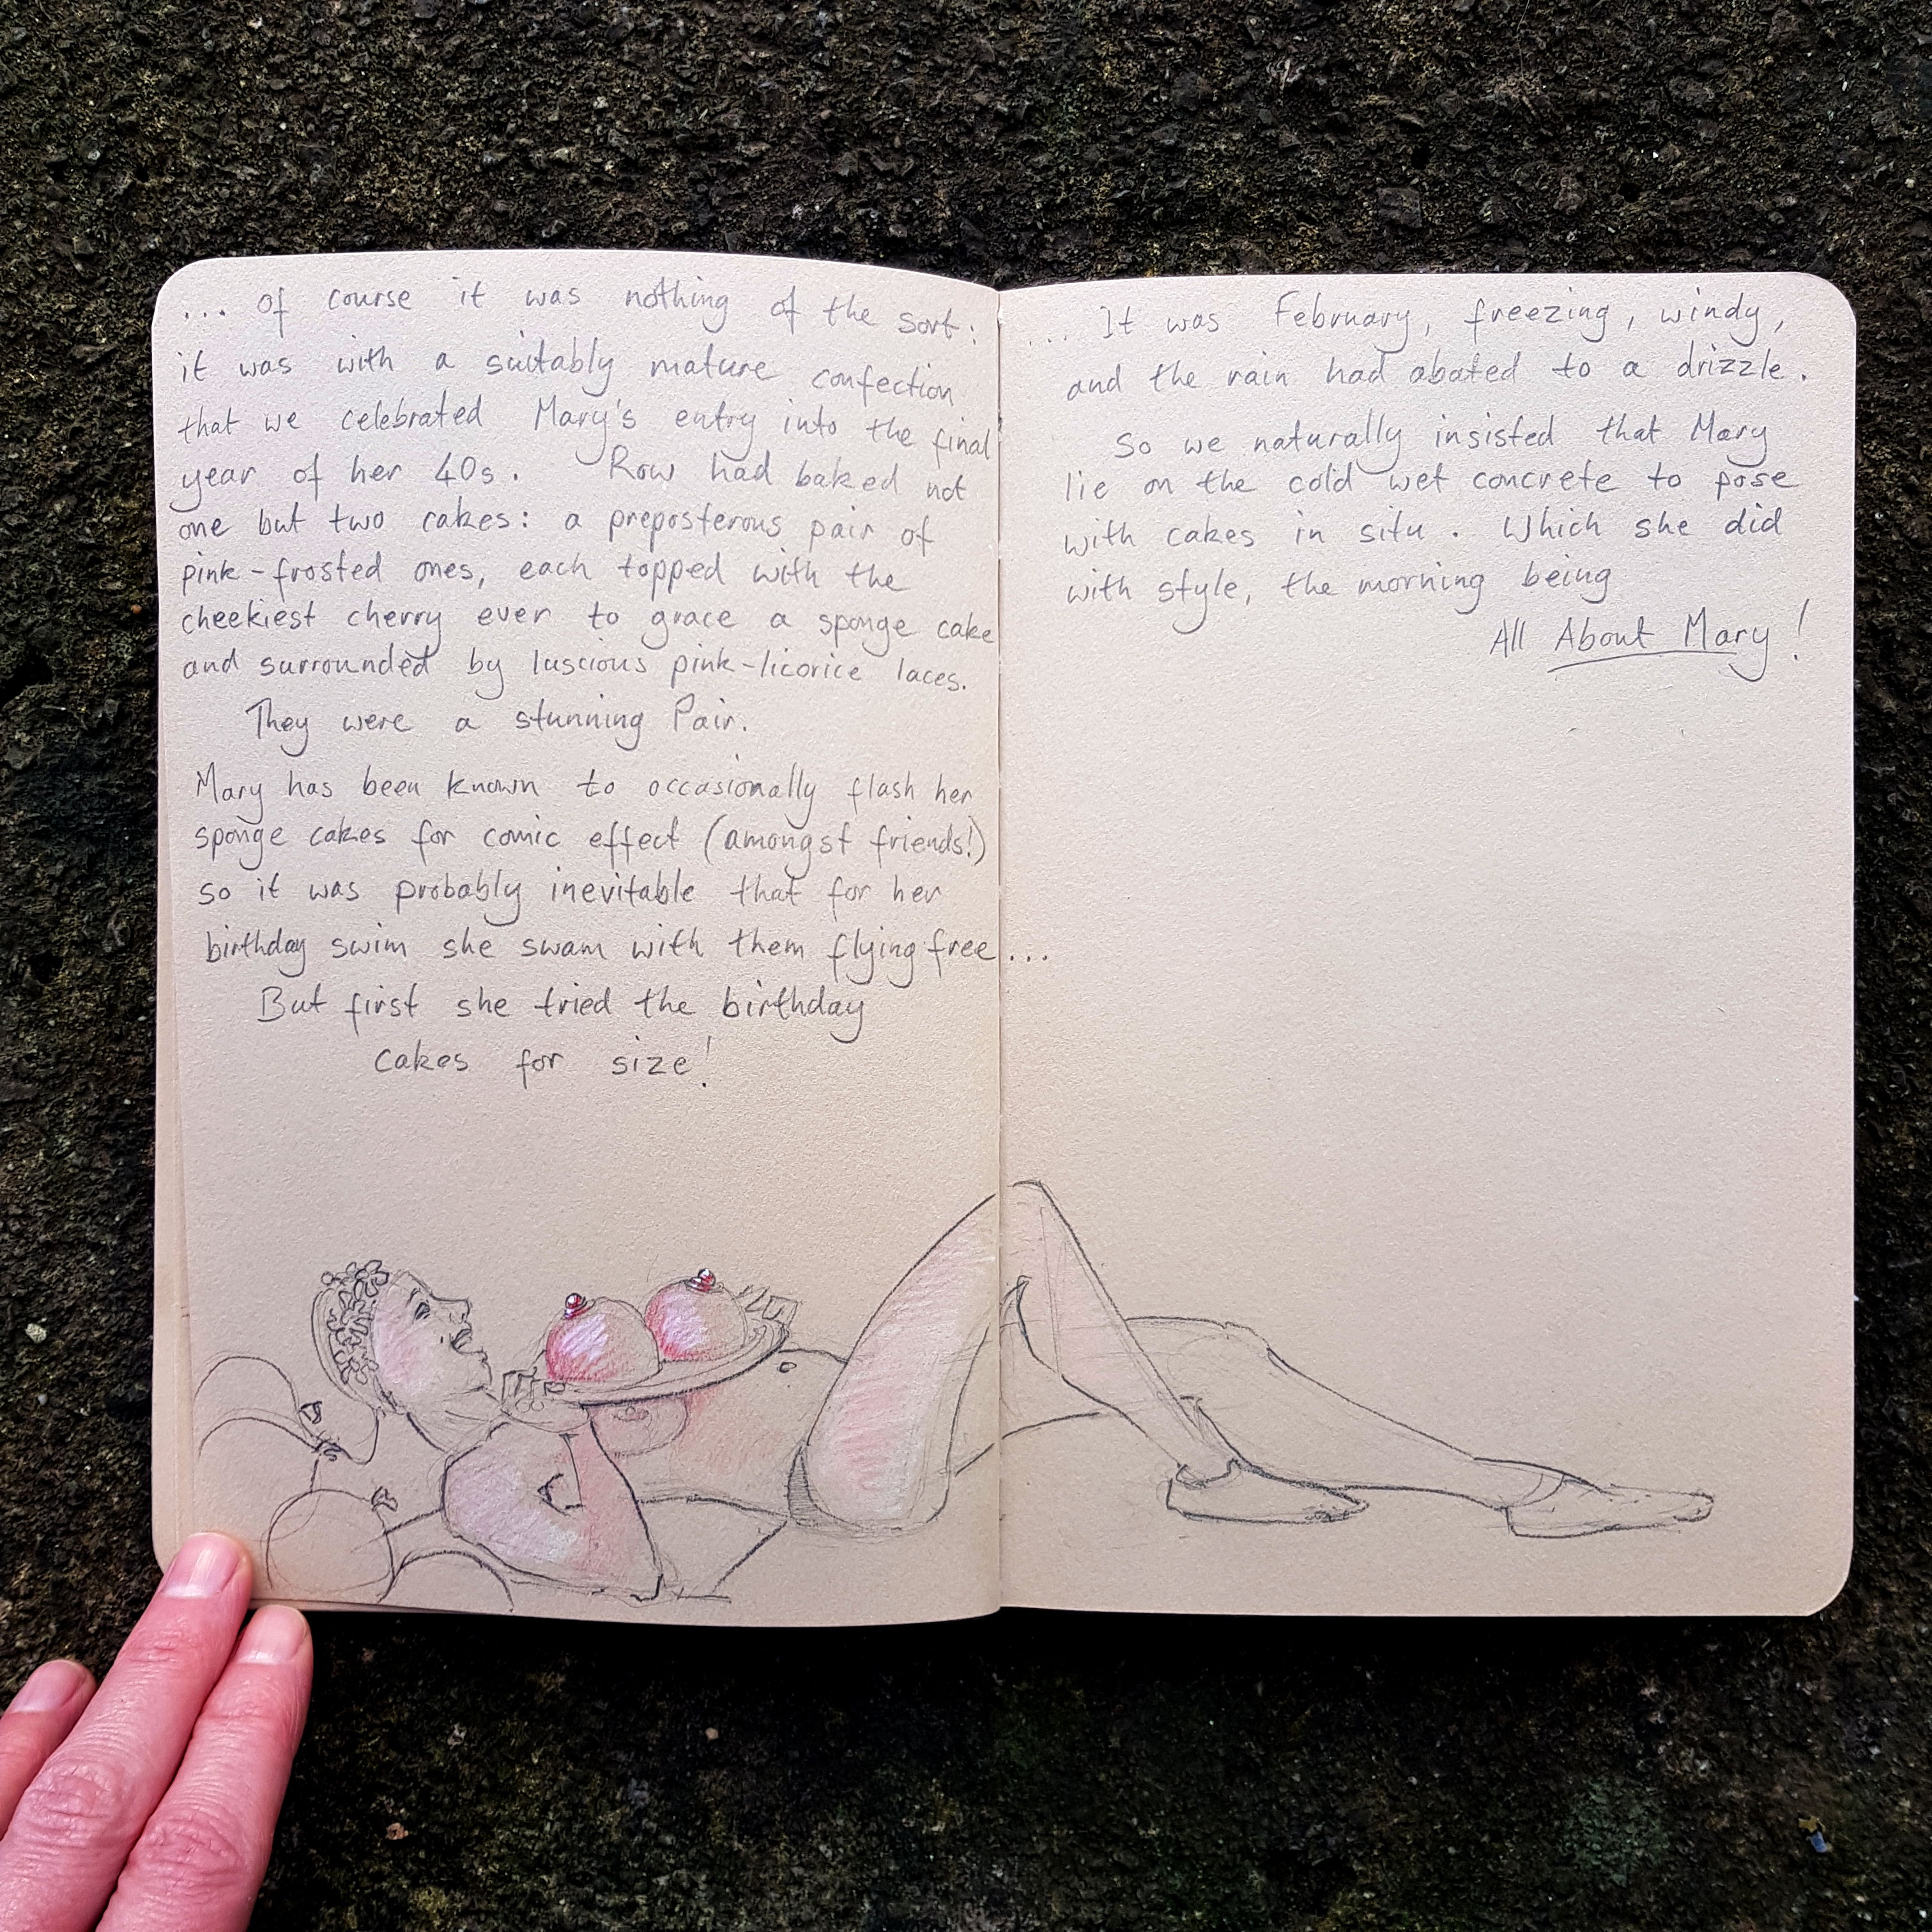 ... of course it was nothing of the sort:
it was with a suitably mature confection
that we celebrated Mary's entry into the final
year of her 40s. Row had baked not
one but two cakes: a preposterous pair of
pink-frosted ones, each topped with the
cheekiest cherry ever to grace a sponge cake
and surrounded by luscious pink-licorice laces.
They were a stunning Pair.
Mary has been known to occasionally flash her
sponge cakes for comic effect (amongst friends!)
so it was probably inevitable that for her
birthday swim she swam with them flying free...
But first she tried the birthday
cakes for size!
... It was February, freezing, windy,
and the rain had abated to a drizzle.
So we naturally insisted that Mary
lie on the cold wet concrete to pose
with cakes in situ. Which she did
with style, the morning being
All About Mary!